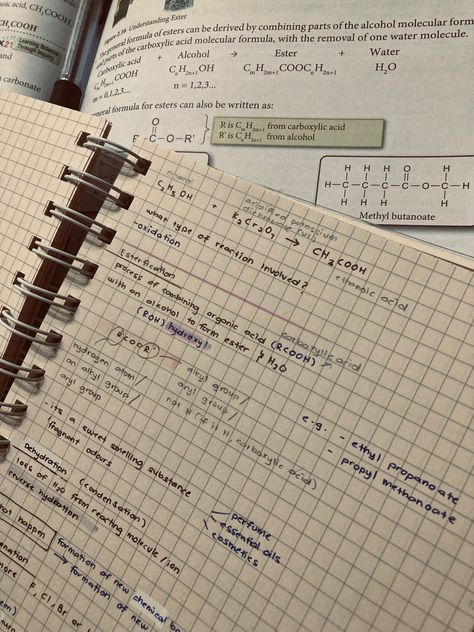 Understanding Ester
general formula of esters can be derived by combining parts of the alcohol molecular form
parts of the carboxylic acid molecular formula, with the removal of one water molecule.
Carboxylic acid + Alcohol → Ester + Water
CₙH₂ₙ₊₁OH CₘH₂ₘ₊₁COOCₙH₂ₙ₊₁ H₂O
m = 0,1,2... n = 1,2,3...
general formula for esters can also be written as:
O
C–O–R'
R is CₘH₂ₘ₊₁ from carboxylic acid
R' is CₙH₂ₙ₊₁ from alcohol
H H H O H
H–C–C–C–C–O–C–H
H H H H
Methyl butanoate
oic acid, CH₃COOH
CH₃COOH
Learning Science
Through Inquiry
and
carbonate
ethanol
acidified potassium
C₂H₅OH + K₂Cr₂O₇ → CH₃COOH
ethanoic acid
what type of reaction involved?
-oxidation
Esterification
process of combining organic acid (RCOOH) carboxylic acid
with an alcohol to form ester & H₂O
(ROH) hydroxyl
RCOOR'
hydrogen atom/
an alkyl group/
aryl group
alkyl group/
aryl group/
not H (if it H, carboxylic acid)
e.g. - ethyl propanoate
- propyl methanoate
- its a sweet smelling substance
fragrant odours
perfume
essential oils
cosmetics
Dehydration (condensation)
loss of H₂O from reacting molecule/ion
reverse hydration
happen
formation of new chemical
→ formation of new
F, Cl, Br or